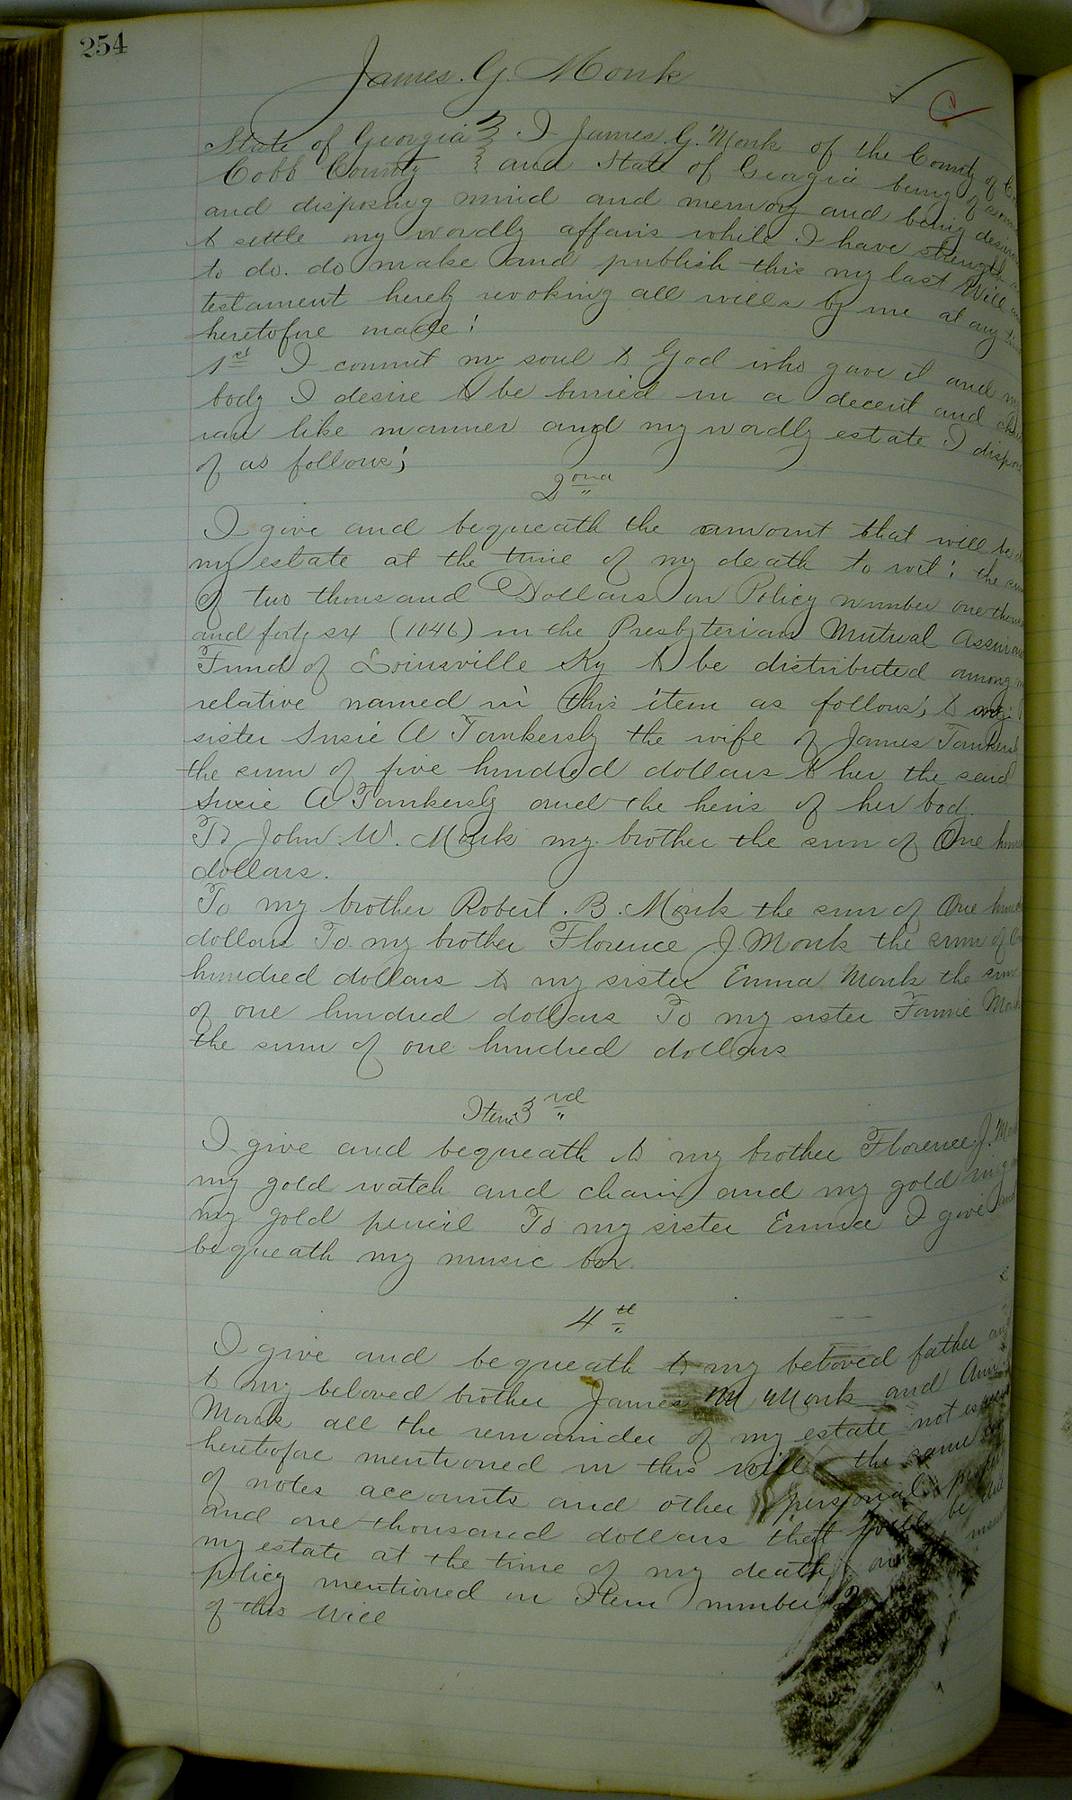 254
James. G. Monk
State of Georgia } I James. G. Monk of the County of
Cobb County } and State of Georgia being of
and disposing mind and memory and being
to settle my wordly affairs while I have strength
to do. do make and publish this my last Will
testament hereby revoking all wills by me at any
heretofore made:
1st I commit my soul to God who gave it and my
body I desire to be burried in a decent and
ian like manner and my wordly estate I
of as follows;
2ond
I give and bequeath the amount that will be
my estate at the time of my death to wit: the
of two thousand Dollars on Policy number one
and forty six (1046) in the Presbyterian Mutual
Fund of Loiusville Ky to be distributed among
relative named in this item as follows; to my
sister Susie A Tankersly the wife of James
the sum of five hundred dollars to her the said
Susie A Tankersly and the heirs of her bod.
To John. W. Monk my brother the sum of One
dollars.
To my brother Robert. B. Monk the sum of One
dollars To my brother Florence J. Monk the sum of
hundred dollars to my sister Emma Monk the
of one hundred dollars To my sister Fannie
the sum of one hundred dollars
Item 3rd
I give and bequeath to my brother Florence J.
my gold watch and chain and my gold ring
my gold pencil To my sister Emma I give
bequeath my music box.
4th
I give and bequeath to my beloved father
to my beloved brother James M Monk and
Monk all the remainder of my estate not
heretofore mentioned in this will the same
of notes accounts and other personal
and one thousand dollars that will be
my estate at the time of my death on
policy mentioned in Item number 2
of this Will